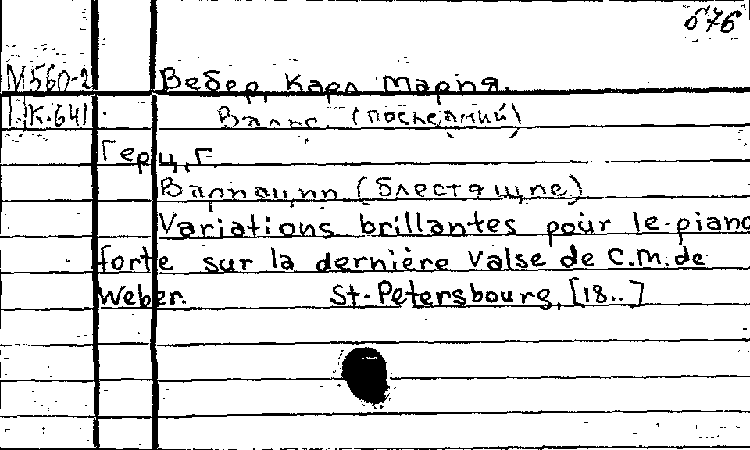 676
М560-2 Вебер, Карл Мария.
П,К.641 Вальс (последний)
Герц, Г.
Вариации (блестящие)
Variations brillantes pour le piano
forte sur la dernière valse de C.M. de
Weber. St-Petersbourg, [18..]